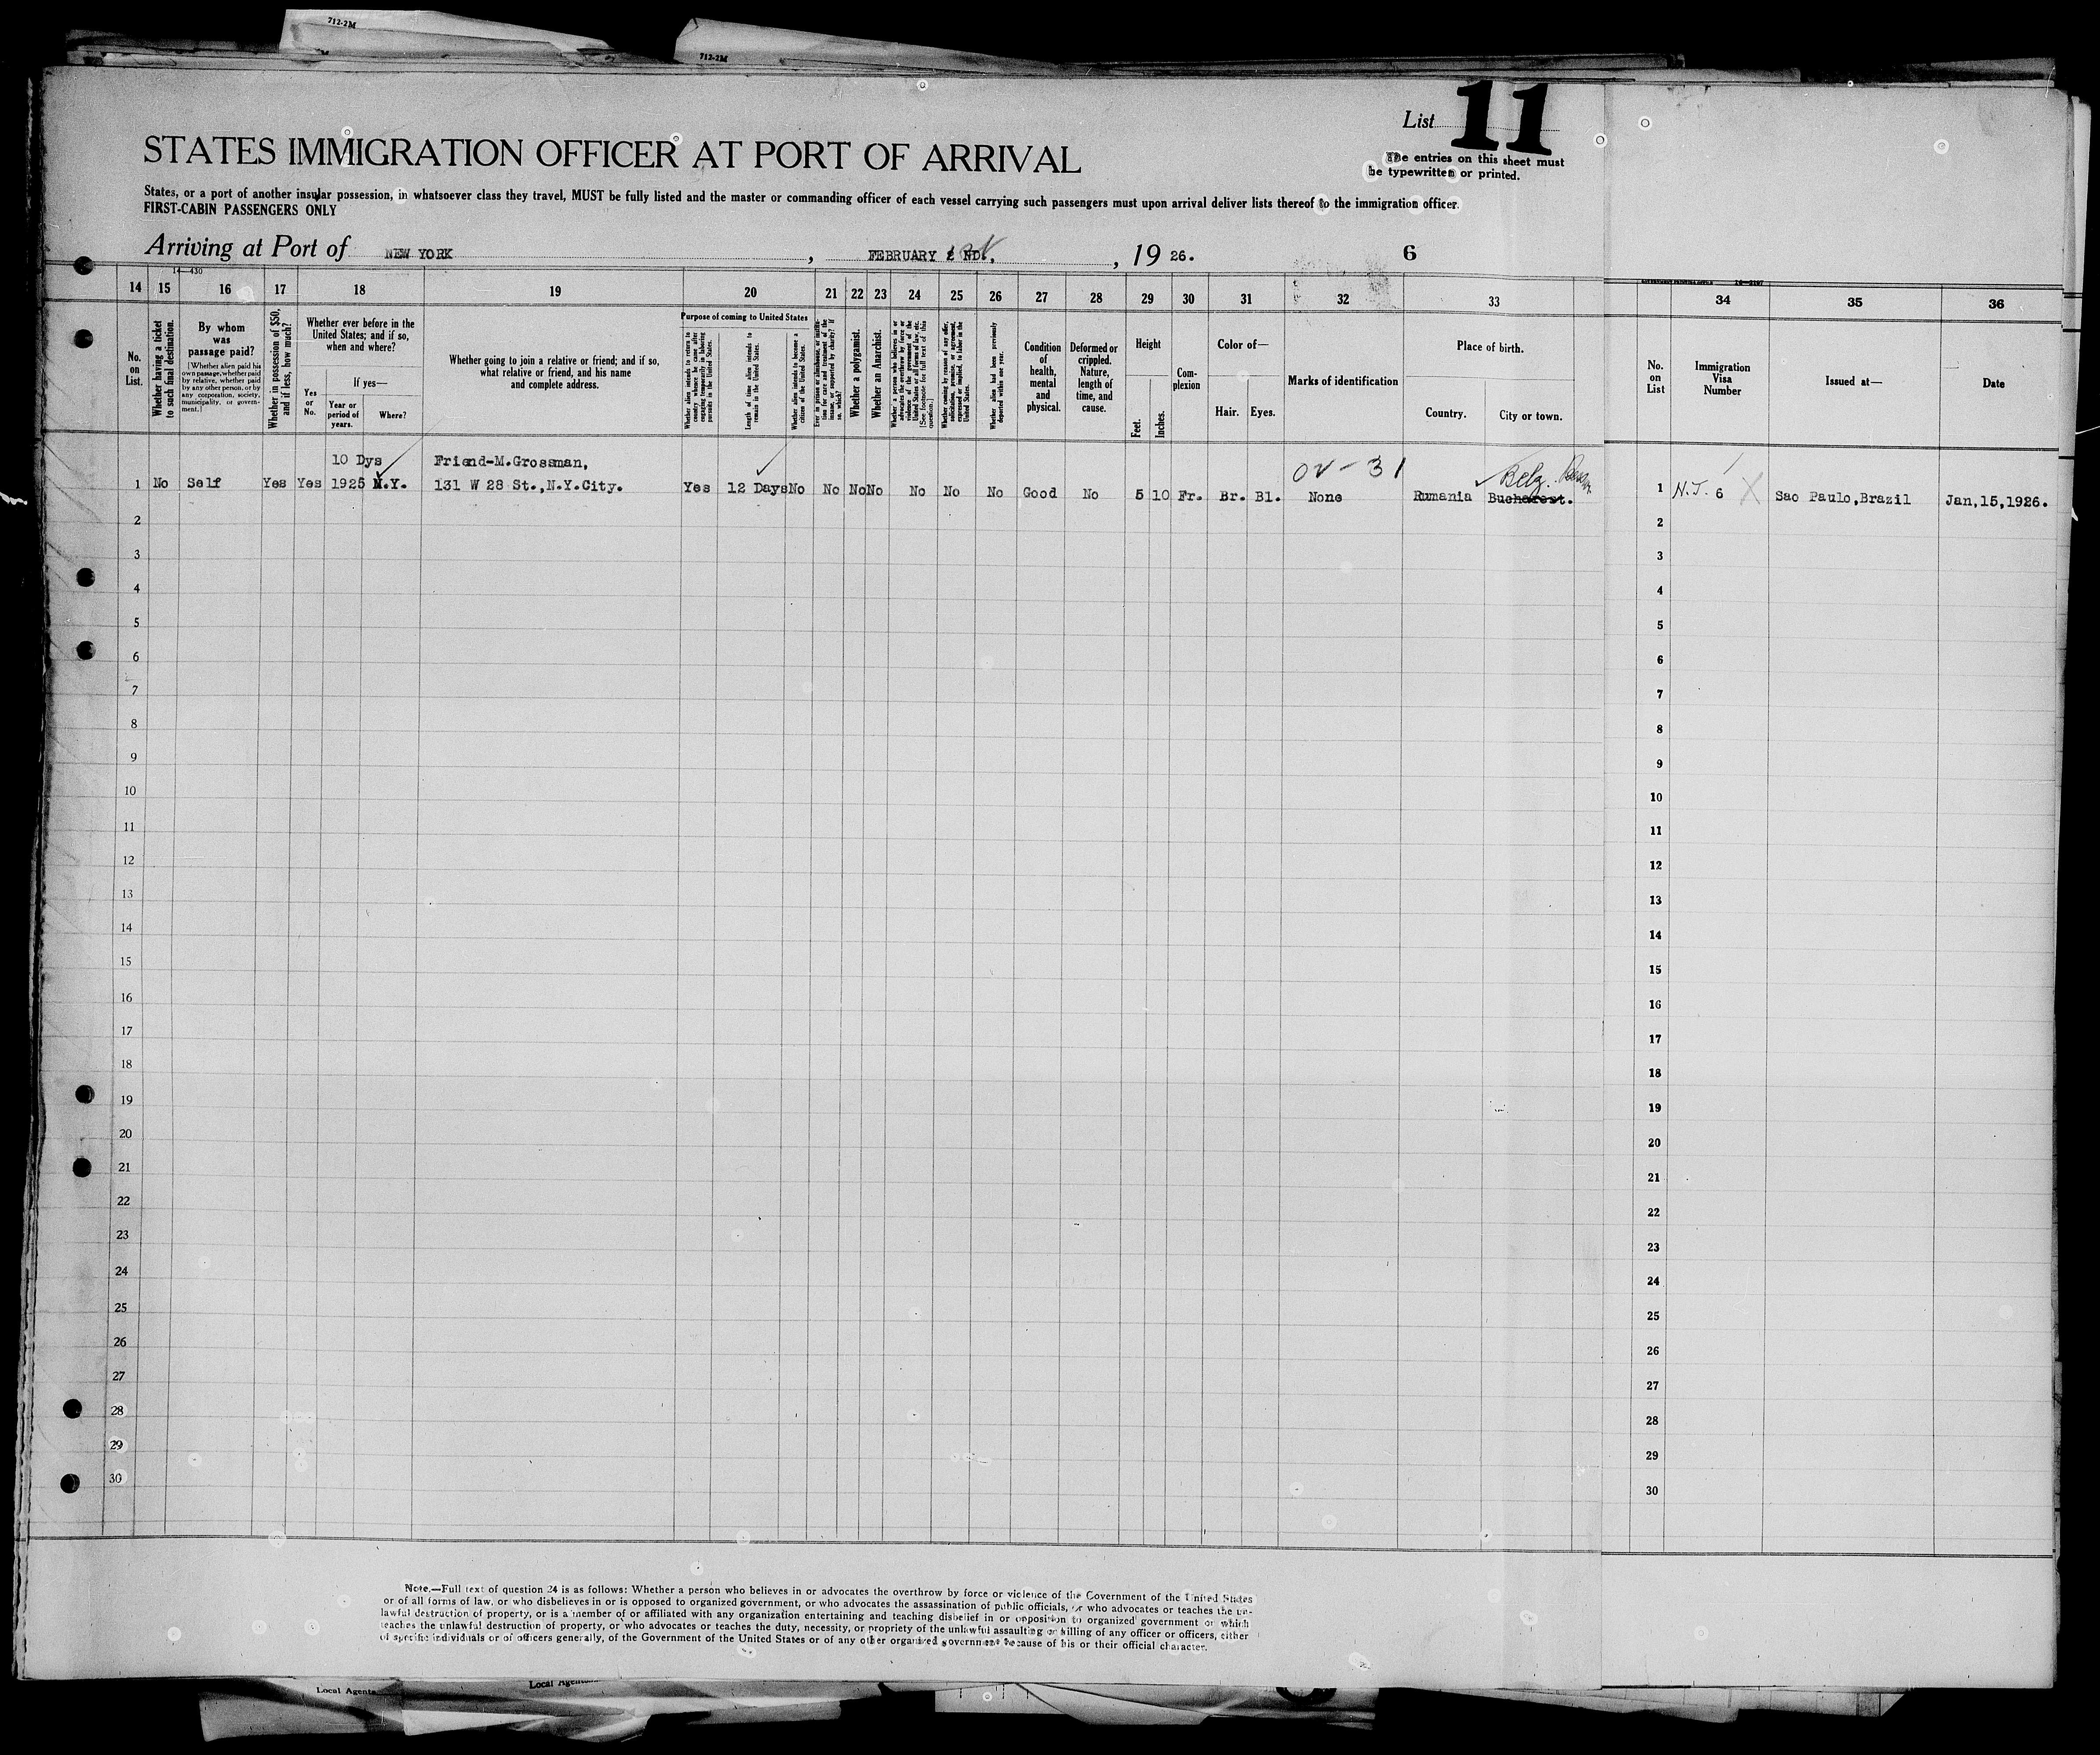 712-2M
712-2M
List 11
STATES IMMIGRATION OFFICER AT PORT OF ARRIVAL
The entries on this sheet must
be typewritten or printed.
States, or a port of another insular possession, in whatsoever class they travel, MUST be fully listed and the master or commanding officer of each vessel carrying such passengers must upon arrival deliver lists thereof to the immigration officer.
FIRST-CABIN PASSENGERS ONLY
Arriving at Port of NEW YORK, FEBRUARY 2 ND., , 19 26. 6
14—430
14 15 16 17 18 19 20 21 22 23 24 25 26 27 28 29 30 31 32 33 34 35 36
No. on List.
Whether having a ticket to such final destination.
By whom was passage paid?
[Whether alien paid his own passage, whether paid by relative, whether paid by any other person, or by any corporation, society, municipality, or government.]
Whether in possession of $50, and if less, how much?
Whether ever before in the United States; and if so, when and where?
Yes or No.
If yes—
Year or period of years.
Where?
Whether going to join a relative or friend; and if so, what relative or friend, and his name and complete address.
Purpose of coming to United States
Whether alien intends to return to country whence he came after engaging temporarily in laboring pursuits in the United States.
Length of time alien intends to remain in the United States.
Whether alien intends to become a citizen of the United States.
Ever in prison or almshouse, or institution for care and treatment of the insane, or supported by charity? If so, which?
Whether a polygamist.
Whether an Anarchist.
Whether a person who believes in or advocates the overthrow by force or violence of the Government of the United States or all forms of law, etc. [See footnote for full text of this question.]
Whether coming by reason of any offer, solicitation, promise, or agreement, expressed or implied, to labor in the United States.
Whether alien had been previously deported within one year.
Condition of health, mental and physical.
Deformed or crippled. Nature, length of time, and cause.
Height
Feet. Inches.
Complexion
Color of—
Hair. Eyes.
Marks of identification
Place of birth.
Country. City or town.
No. on List
Immigration Visa Number
Issued at—
Date
10 Dys Friend-M.Grossman, OV - 31 Belz.
1 No Self Yes Yes 1925 N.Y. 131 W 28 St.,N.Y.City. Yes 12 Days No No No No No No No Good No 5 10 Fr. Br. Bl. None Rumania Bucharest. 1 N.J. 6 X Sao Paulo,Brazil Jan,15,1926.
2 2
3 3
4 4
5 5
6 6
7 7
8 8
9 9
10 10
11 11
12 12
13 13
14 14
15 15
16 16
17 17
18 18
19 19
20 20
21 21
22 22
23 23
24 24
25 25
26 26
27 27
28 28
29 29
30 30
Note.—Full text of question 24 is as follows: Whether a person who believes in or advocates the overthrow by force or violence of the Government of the United States
or of all forms of law, or who disbelieves in or is opposed to organized government, or who advocates the assassination of public officials, or who advocates or teaches the un-
lawful destruction of property, or is a member of or affiliated with any organization entertaining and teaching disbelief in or opposition to organized government or which
teaches the unlawful destruction of property, or who advocates or teaches the duty, necessity, or propriety of the unlawful assaulting or killing of any officer or officers, either
of specific individuals or of officers generally, of the Government of the United States or of any other organized government because of his or their official character.
Local Agents
Local Agents